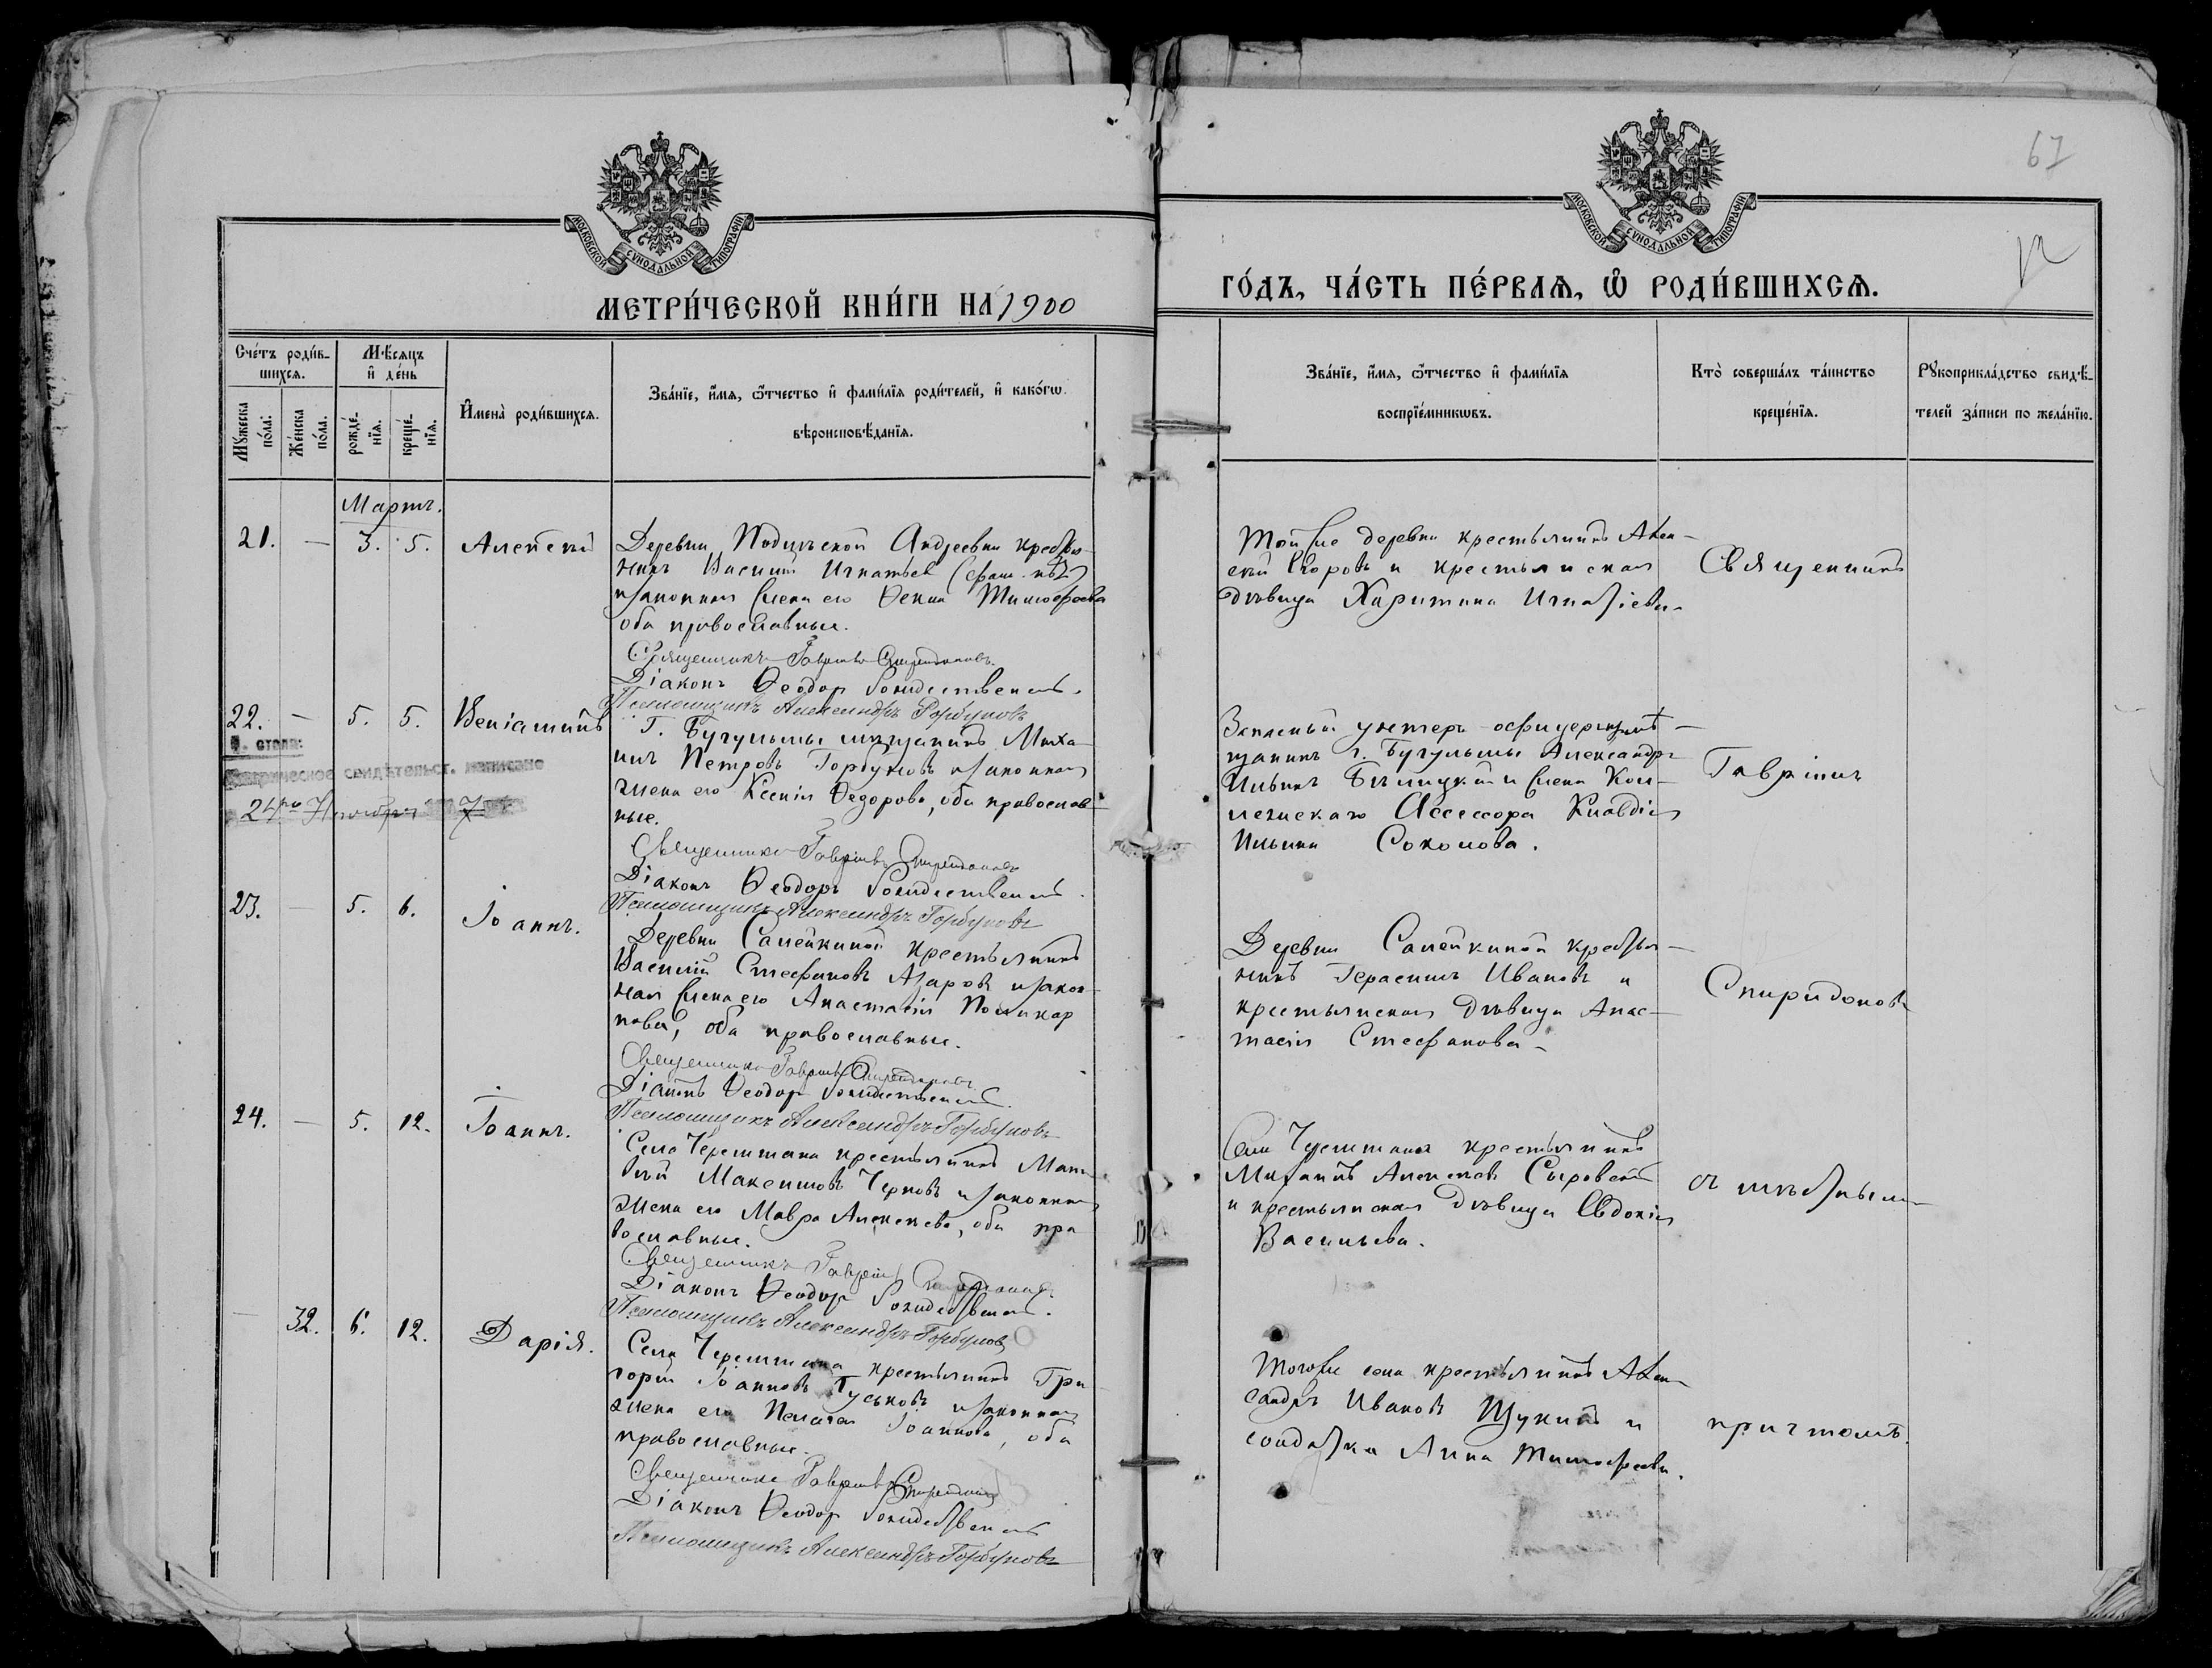 МОСКОВСКОЙ СУНОДАЛЬНОЙ ТИПОГРАФІИ
МОСКОВСКОЙ СУНОДАЛЬНОЙ ТИПОГРАФІИ
61
МЕТРИ́ЧЕСКОЙ КНИ́ГИ НА 1900
ГО́ДЪ, ЧА́СТЬ ПЕ́РВАѦ, Ѡ РОДИ́ВШИХСѦ.
Сче́тъ роди́в-
шихсѧ.
Мꙋ́жеска по́ла:
Же́нска по́ла.
Мѣ́сѧцъ
и҆ де́нь
рожде́-
нїѧ.
креще́-
нїѧ.
И҆мена̀ роди́вшихсѧ.
Зва́нїе, и҆́мѧ, ѻ҆́тчество и҆ фами́лїѧ роди́телей, и҆ како́гѡ
вѣроисповѣ́данїѧ.
Зва́нїе, и҆́мѧ, ѻ҆́тчество и҆ фами́лїѧ
воспрїе́мникѡвъ.
Кто̀ соверша́лъ та́инство
креще́нїѧ.
Рꙋкоприкла́дство свидѣ́-
телей за́писи по жела́нїю.
Мартъ.
21. — 3. 5. Алексѣй
Деревни Подлѣской Андреевки крестья-
нинъ Василій Игнатьев
и законная жена его Ѳекла Тимофеева
оба православные.
Священникъ Гавріилъ Спиридоновъ.
Діаконъ Ѳеодоръ Рождественскій.
Псаломщикъ Александръ Горбуновъ
Той же деревни крестьянинъ Алек-
сѣй Егоровъ и крестьянская
дѣвица Харитина Игнатіева
Священникъ
22. — 5. 5. Веніаминъ
стола:
Метрическое свидѣтельст. написано
24го Ноября
Г. Бугульмы мѣщанинъ Миха-
илъ Петровъ Горбуновъ и законная
жена его Ксенія Ѳедорова, оба православ-
ные.
Священникъ Гавріилъ Спиридоновъ
Діаконъ Ѳеодоръ Рождественскій.
Псаломщикъ Александръ Горбуновъ
Запасный унтеръ-офицеръ мѣ-
щанинъ г. Бугульмы Александръ
Ильинъ Бѣлицкій и жена Кол-
лежскаго Ассессора Клавдія
Ильина Соколова.
Гавріилъ
23. — 5. 6. Іоаннъ.
Деревни Салейкиной крестьянинъ
Василій Стефановъ Азаровъ и закон-
ная жена его Анастасія Поликар
пова, оба православные.
Священникъ Гавріилъ Спиридоновъ
Діаконъ Ѳеодоръ Рождественскій.
Псаломщикъ Александръ Горбуновъ
Деревни Салейкиной крестья-
нинъ Герасимъ Ивановъ и
крестьянская дѣвица Анас-
тасія Стефанова
Спиридоновъ
24. — 5. 12. Іоаннъ.
Села Черемшана крестьянинъ Мат
вѣй Максимовъ Черновъ и законная
жена его Мавра Алексѣева, оба пра
вославные.
Священникъ Гавріилъ Спиридоновъ
Діаконъ Ѳеодоръ Рождественскій.
Псаломщикъ Александръ Горбуновъ
Села Черемшана крестьянинъ
Михаилъ Алексѣевъ Сыровский
и крестьянская дѣвица Евдокія
Васильева.
съ мѣстнымъ
— 32. 6. 12. Дарія.
Села Черемшана крестьянинъ Гри
горій Іоанновъ Гуськовъ и законная
жена его Пелагея Іоаннова, оба
православные.
Священникъ Гавріилъ Спиридоновъ
Діаконъ Ѳеодоръ Рождественскій
Псаломщикъ Александръ Горбуновъ
Того же села крестьянинъ Алек-
сандръ Ивановъ Щукинъ и
солдатка Анна Тимофеева.
причтомъ.